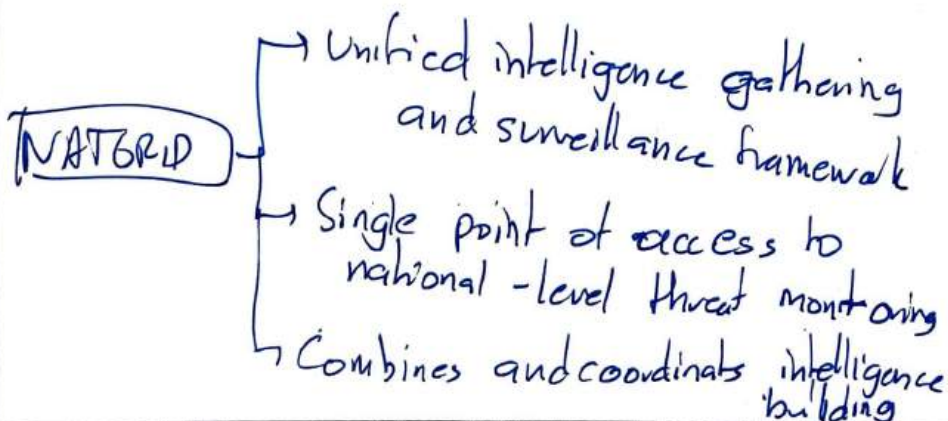 NATGRID
→ Unified intelligence gathering
and surveillance framework
→ Single point of access to
national-level threat monitoring
→ Combines and coordinats intelligence
building